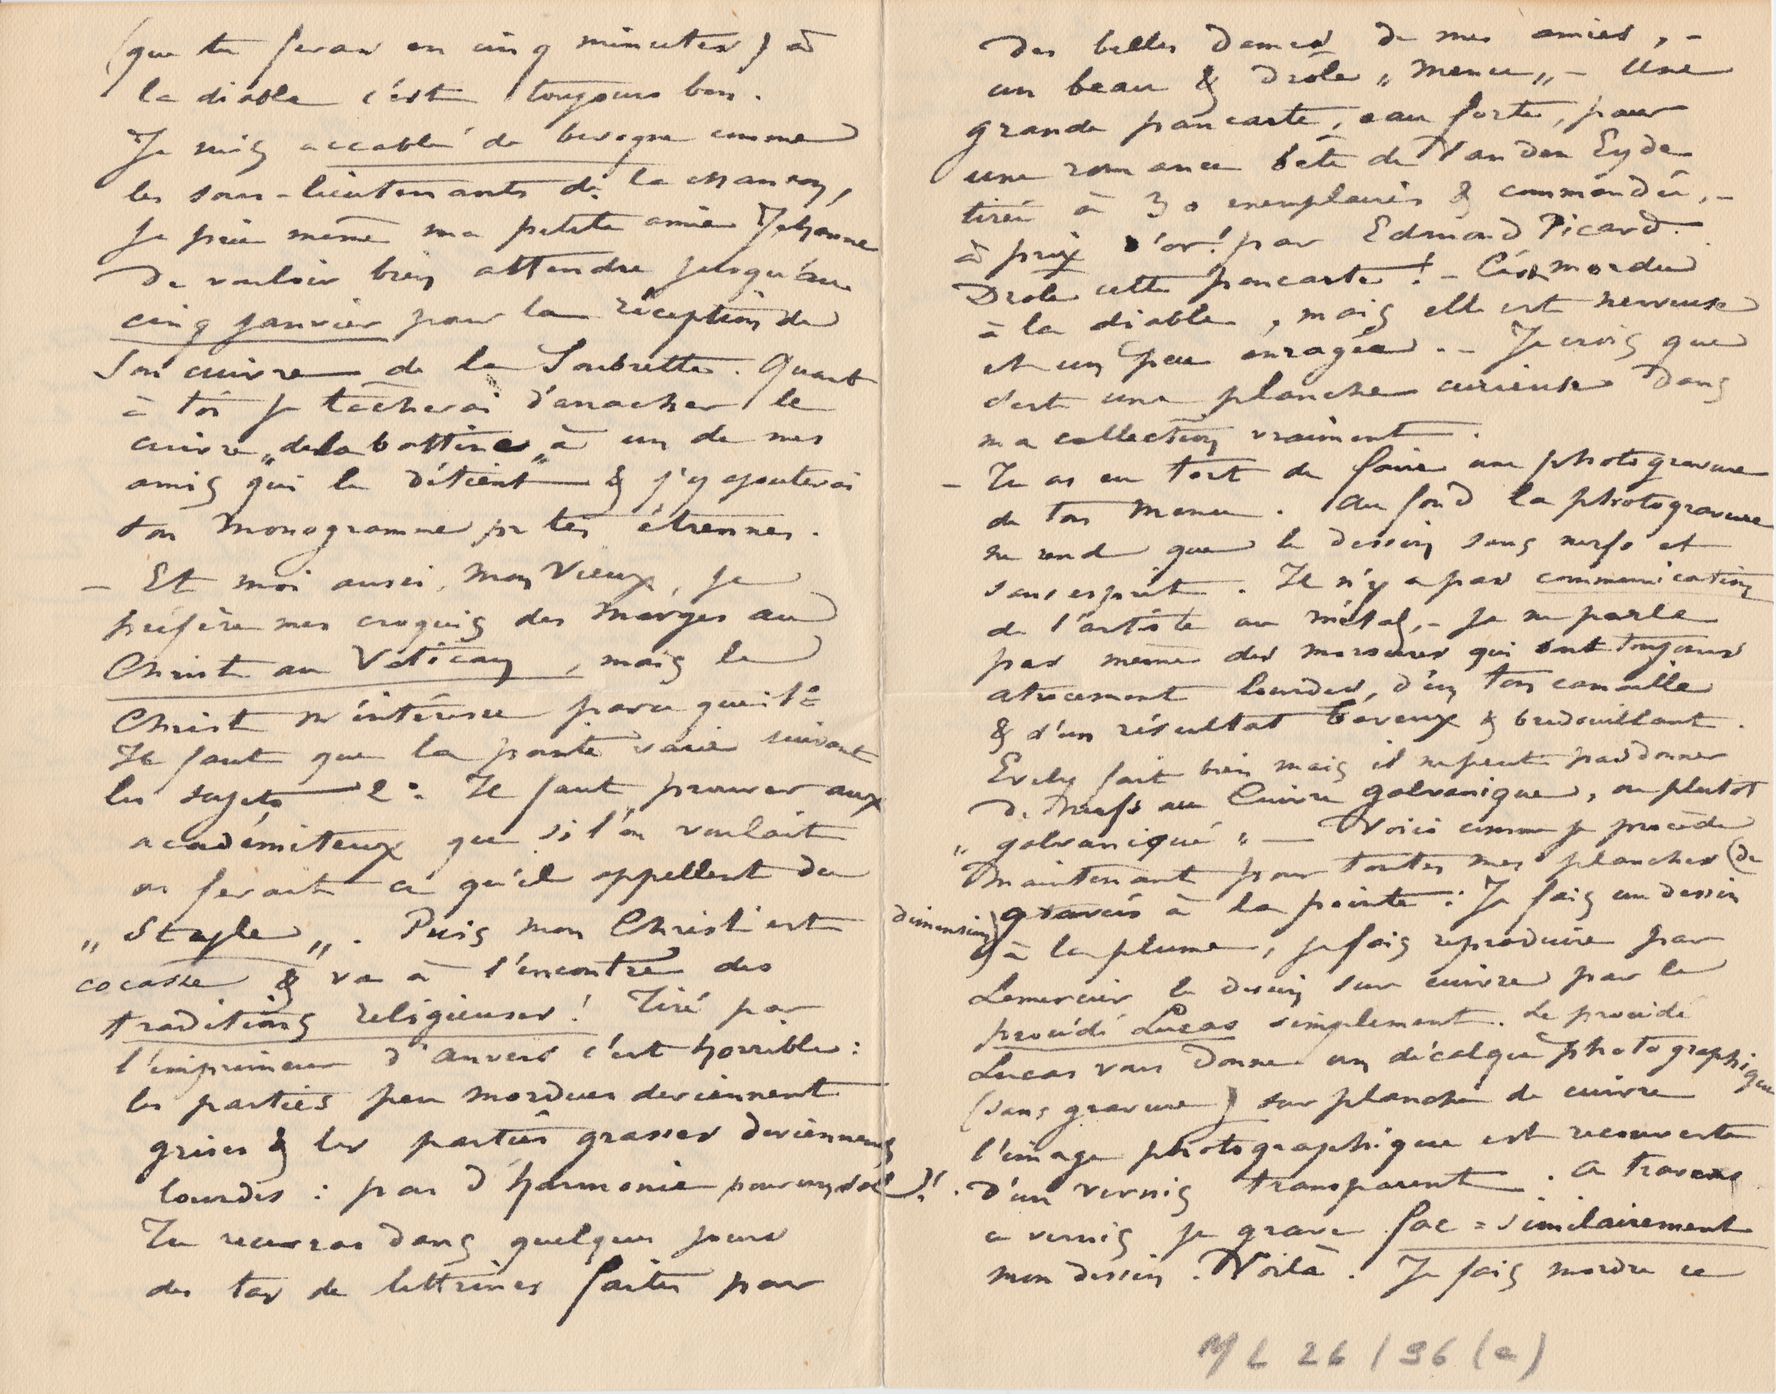 (que tu feras en cinq minutes) à
la diable c'est toujours bon.
Je suis accablé de besogne comme
les sous-lieutenants de la chanson,
Je prie même ma petite amie Jehanne
de vouloir bien attendre jusqu'au
cinq janvier pour la réception de
son cuivre de la Soubrette. Quant
à toi je tâcherai d'arracher le
cuivre „de la bottine„ à un de mes
amis qui le détient & j'y ajouterai
ton monogramme pr tes étrennes.
– Et moi aussi, mon Vieux, je
préfère mes croquis des marges au
Christ au Vatican, mais le
Christ m'intéresse parce que : 1º
Il faut que la pointe varie suivant
les sujets – 2º. Il faut prouver aux
académiteux que si l'on voulait
on ferait ce qu'il appellent du
„Style„. Puis mon Christ est
cocasse & va à l'encontre des
traditions religieuses! Tiré par
l'imprimeur d'Anvers c'est horrible:
les parties peu mordues deviennent
grises & les parties grasses deviennent
lourdes : pas d'harmonie pour un sol!!.
Tu recevras dans quelques jours
des tas de lettrines faites pour
des belles dames de mes amies, –
un beau & drôle „menu„ – Une
grande pancarte, eau forte, pour
une romance bête de Van den Eyde
tirée à 30 exemplaires & commandée, –
à prix d'or! par Edmond Picard.
Drole cette pancarte! – C'est mordu
à la diable, mais elle est nerveuse
et un peu enragée. – Je crois que
c'est une planche curieuse dans
ma collection vraiment.
– Tu as eu tort de faire une photogravure
de ton menu. Au fond la photogravure
ne rend que le dessin sans nerfs et
sans esprit. Il n'y a pas communication
de l'artiste au métal, – je ne parle
pas même des morsures qui sont toujours
atrocement lourdes, d'un ton canaille
& d'un résultat baveux & bredouillant.
Evely fait bien mais il ne peut pas donner
de nerfs au Cuivre galvanique, ou plutot
„galvaniqué„ – Voici comme je procède
Maintenant pour toutes mes planches (de
dimension) gravées à la pointe: Je fais un dessin
à la plume, je fais reproduire par
Lemercier le dessin sur cuivre par le
procédé Lucas simplement. Le procédé
Lucas vous donne un décalque photographique
(sans gravure) sur planche de cuivre
l'image photographique est recouverte
d'un vernis transparent. A travers
ce vernis je grave fac=similairement
mon dessin. Voilà. Je fais mordre ce
ML 26/96 (a)